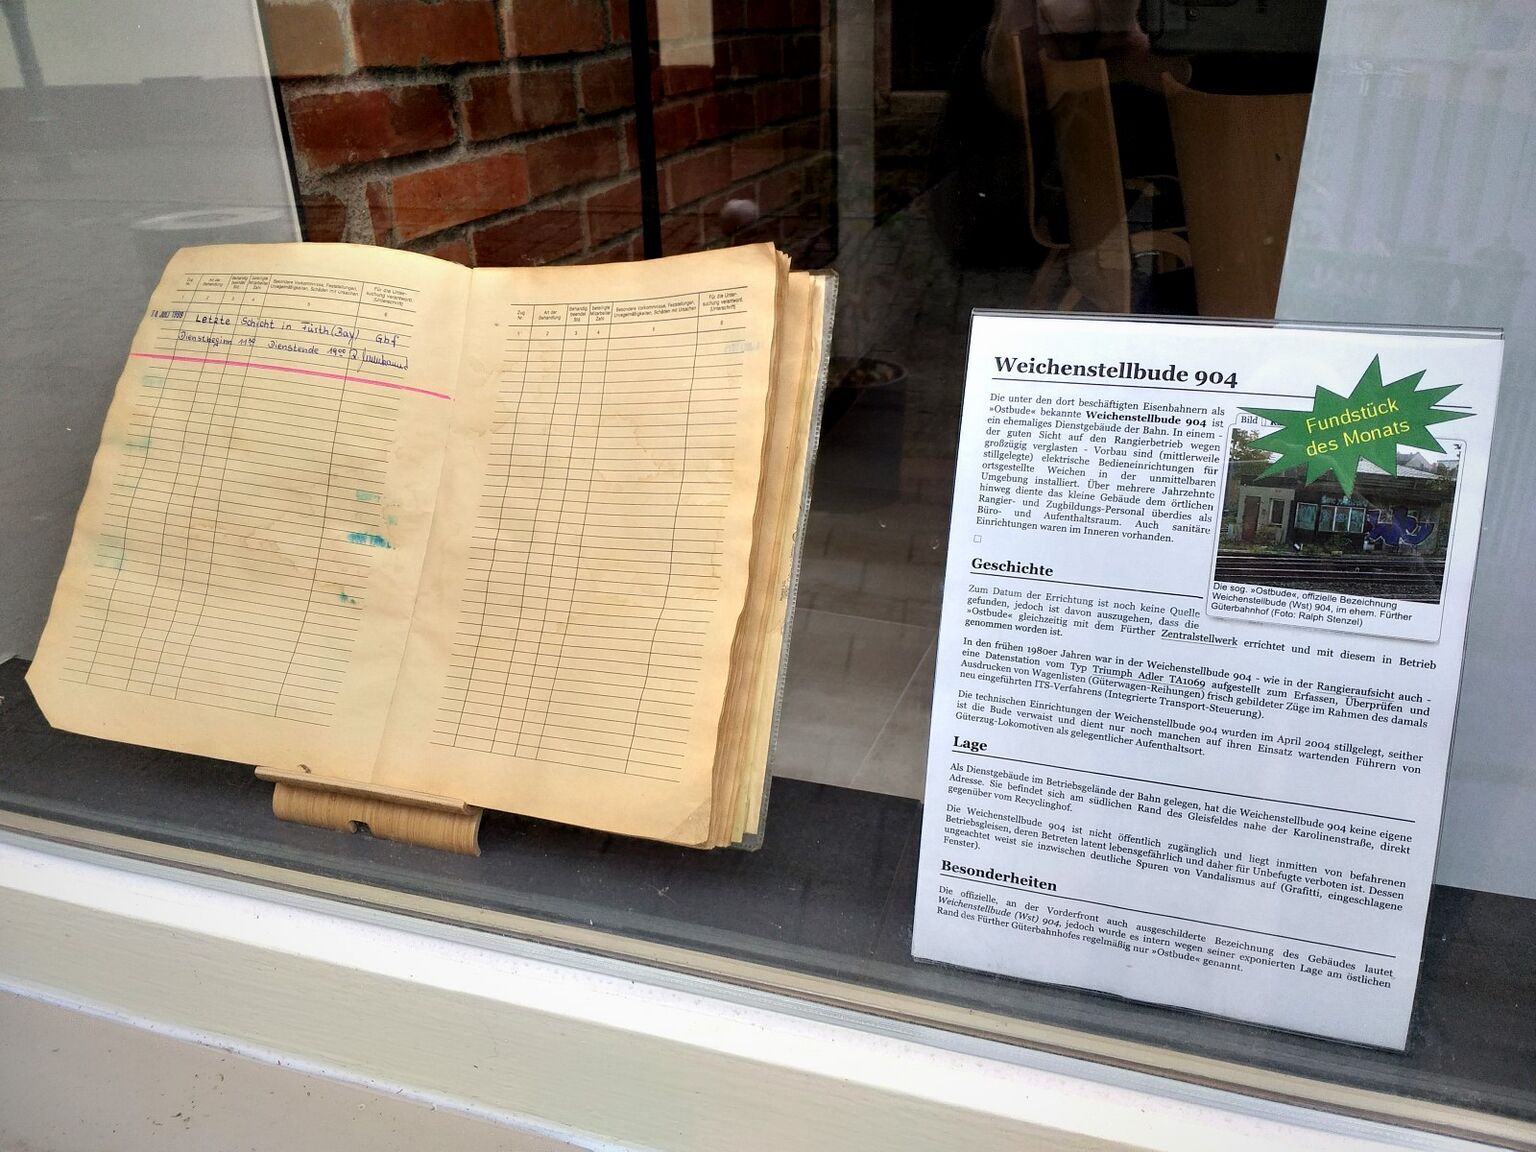 Zug Nr.
Art der Behandlung
Behandlg. beendet Std.
beteiligte Mitarbeiter Zahl
Besondere Vorkommnisse, Feststellungen,
Unregelmäßigkeiten, Schäden mit Ursachen
Für die Unter-
suchung verantwortl.
(Unterschrift)
1 2 3 4 5 6
JULI 1999 Letzte Schicht in Fürth (Bay) Gbf
Dienstbeginn 11 Dienstende 19
Zug Nr.
Art der Behandlung
Behandlg. beendet Std.
beteiligte Mitarbeiter Zahl
Besondere Vorkommnisse, Feststellungen,
Unregelmäßigkeiten, Schäden mit Ursachen
Für die Unter-
suchung verantwortl.
(Unterschrift)
1 2 3 4 5 6
Weichenstellbude 904
Die unter den dort beschäftigten Eisenbahnern als
»Ostbude« bekannte Weichenstellbude 904 ist
ein ehemaliges Dienstgebäude der Bahn. In einem -
der guten Sicht auf den Rangierbetrieb wegen
großzügig verglasten - Vorbau sind (mittlerweile
stillgelegte) elektrische Bedieneinrichtungen für
ortsgestellte Weichen in der unmittelbaren
Umgebung installiert. Über mehrere Jahrzehnte
hinweg diente das kleine Gebäude dem örtlichen
Rangier- und Zugbildungs-Personal überdies als
Büro- und Aufenthaltsraum. Auch sanitäre
Einrichtungen waren im Inneren vorhanden.
Bild
Fundstück
des Monats
Die sog. »Ostbude«, offizielle Bezeichnung
Weichenstellbude (Wst) 904, im ehem. Fürther
Güterbahnhof (Foto: Ralph Stenzel)
Geschichte
Zum Datum der Errichtung ist noch keine Quelle
gefunden, jedoch ist davon auszugehen, dass die
»Ostbude« gleichzeitig mit dem Fürther Zentralstellwerk errichtet und mit diesem in Betrieb
genommen worden ist.
In den frühen 1980er Jahren war in der Weichenstellbude 904 - wie in der Rangieraufsicht auch -
eine Datenstation vom Typ Triumph Adler TA1069 aufgestellt zum Erfassen, Überprüfen und
Ausdrucken von Wagenlisten (Güterwagen-Reihungen) frisch gebildeter Züge im Rahmen des damals
neu eingeführten ITS-Verfahrens (Integrierte Transport-Steuerung).
Die technischen Einrichtungen der Weichenstellbude 904 wurden im April 2004 stillgelegt, seither
ist die Bude verwaist und dient nur noch manchen auf ihren Einsatz wartenden Führern von
Güterzug-Lokomotiven als gelegentlicher Aufenthaltsort.
Lage
Als Dienstgebäude im Betriebsgelände der Bahn gelegen, hat die Weichenstellbude 904 keine eigene
Adresse. Sie befindet sich am südlichen Rand des Gleisfeldes nahe der Karolinenstraße, direkt
gegenüber vom Recyclinghof.
Die Weichenstellbude 904 ist nicht öffentlich zugänglich und liegt inmitten von befahrenen
Betriebsgleisen, deren Betreten latent lebensgefährlich und daher für Unbefugte verboten ist. Dessen
ungeachtet weist sie inzwischen deutliche Spuren von Vandalismus auf (Grafitti, eingeschlagene
Fenster).
Besonderheiten
Die offizielle, an der Vorderfront auch ausgeschilderte Bezeichnung des Gebäudes lautet
Weichenstellbude (Wst) 904, jedoch wurde es intern wegen seiner exponierten Lage am östlichen
Rand des Fürther Güterbahnhofes regelmäßig nur »Ostbude« genannt.